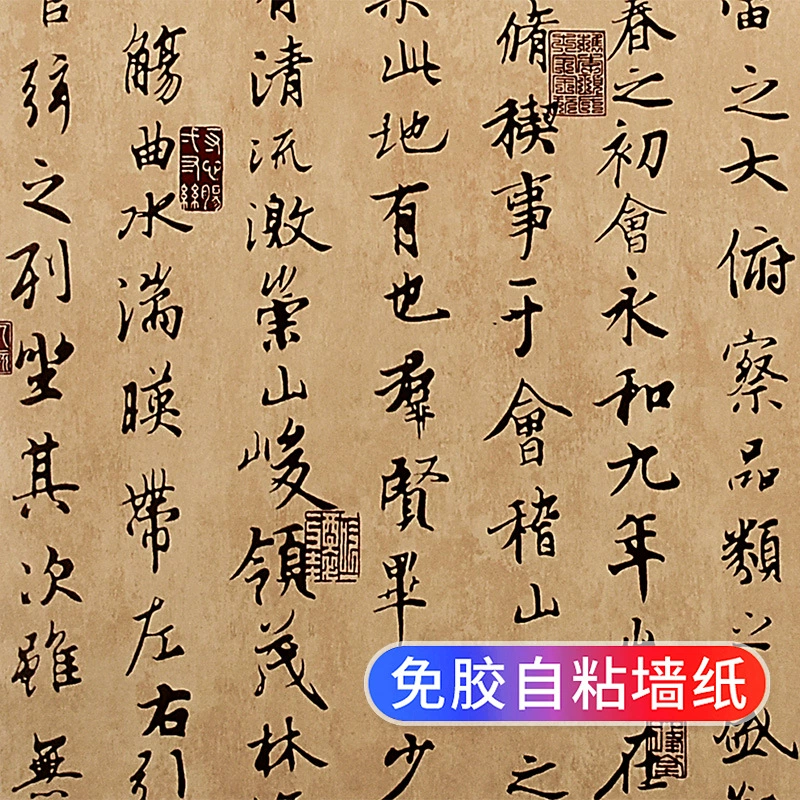 之大俯察品類之盛
春之初會永和九年在
脩稧事于會稽山之
此地有也群賢畢少
有清流激崇山峻領茂林
觴曲水湍暎帶左右引
弦之列坐其次雖無
免胶自粘墙纸